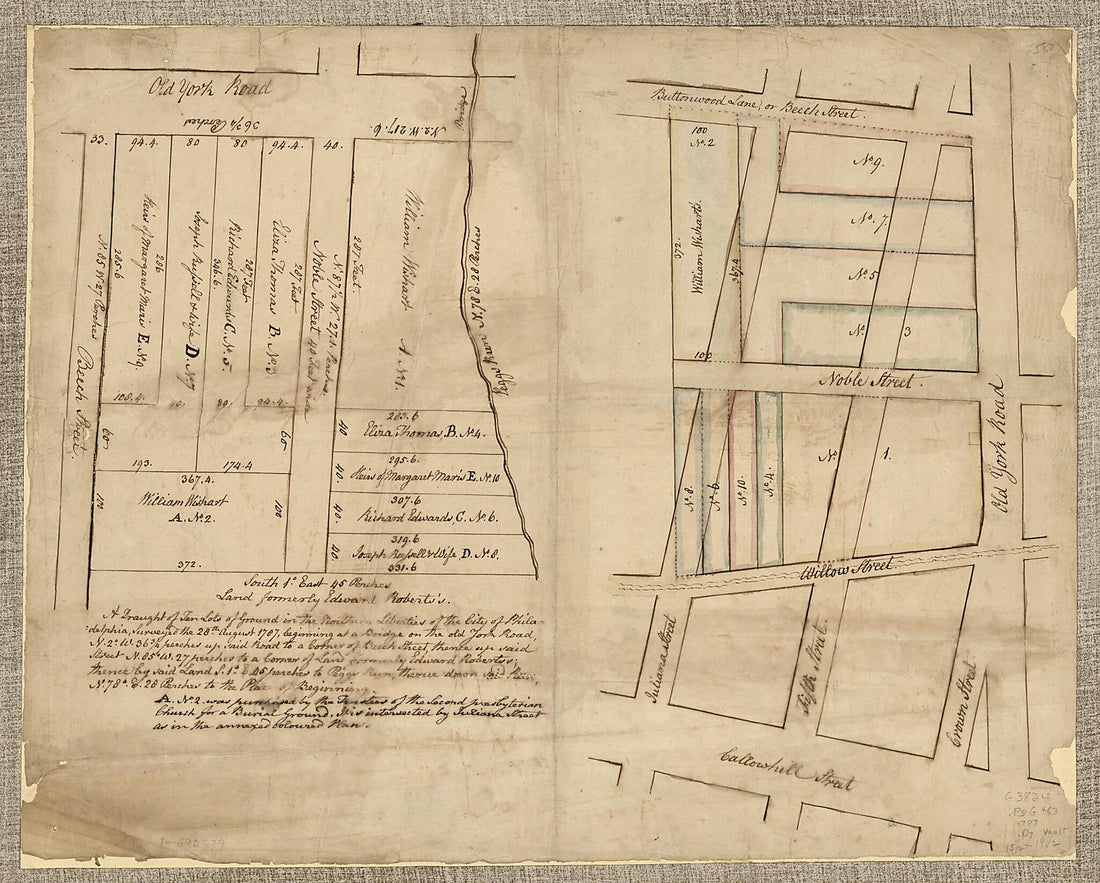 Old York Road
36 3/4 Perches
N. 2. W. 217. 6.
Bridge
33.
94.4.
80
80
94.4.
40.
N. 85 W. 27 Perches
Beech Street.
285.6
Heirs of Margaret Maris E. No. 9.
286
Joseph Russell & Wife D. No. 7
286.6.
Richard Edwards C. No. 5.
287 Feet
Eliza Thomas B. No. 3.
287 Feet
Noble Street 40 Feet wide
N. 87 1/2 W. 27.1 Perches.
287 Feet.
William Wishart A. No. 1.
Peggs Run N. 78 E. 28 Perches
108.4.
80.
80.
94.4.
60
60
193.
174.4
367.4.
William Wishart
A. No. 2.
100
100
372.
283.6
40
Eliza Thomas. B. No. 4.
295.6.
40.
Heirs of Margaret Maris E. No. 10
307.6
40.
Richard Edwards. C. No. 6.
319.6
40
Joseph Russell & Wife D. No. 8.
331.6
South 1° East 45 Perches
Land formerly Edward Roberts's.
A Draught of Ten Lots of Ground in the Northern Liberties of the City of Phila-
delphia, surveyed the 28th August 1787, beginning at a Bridge on the old York Road,
N. 2° W. 36 3/4 perches up said Road to a Corner of Beech Street, thence up said
Street N. 85° W. 27 perches to a Corner of Land formerly Edward Roberts's;
thence by said Land S. 1° E. 45 perches to Peggs Run, thence down said Run,
N. 78° E. 28 Perches to the Place of Beginning.
A. No. 2 was purchased by the Trustees of the Second presbyterian
Church for a Burial Ground. It is intersected by Juliana Street
as in the annexed coloured Plan.
Buttonwood Lane, or Beech Street.
100
No. 2
372.
William Wishart.
367.4
100
No. 9.
No. 7.
No. 5
No. 3
Noble Street.
Old York Road
No. 8.
No. 6.
No. 10
No. 4.
No. 1.
Willow Street
Juliana Street
Fifth Street.
Crown Street
Callowhill Street
G3824
.P5G463
1787
.D7
Vault